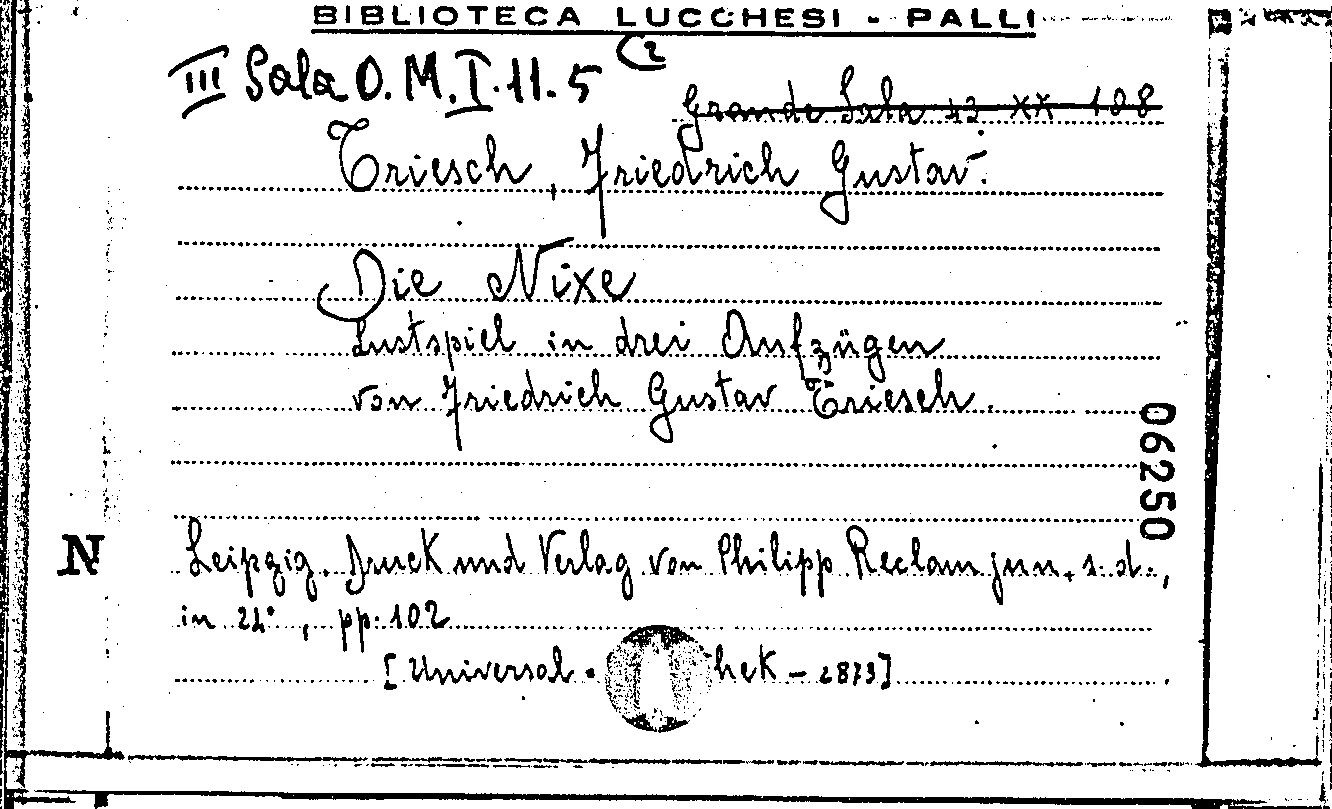 BIBLIOTECA LUCCHESI - PALLI
III Sala O. M. I. 11. 5 (2
Grande Sala 43 XX 108
Triesch, Friedrich Gustav.
Die Nixe
Lustspiel in drei Aufzügen
von Friedrich Gustav Triesch.
06250
N
Leipzig. Druck und Verlag von Philipp Reclam jun. s. d.,
in 24°, pp. 102
[Universal - hek - 2873]